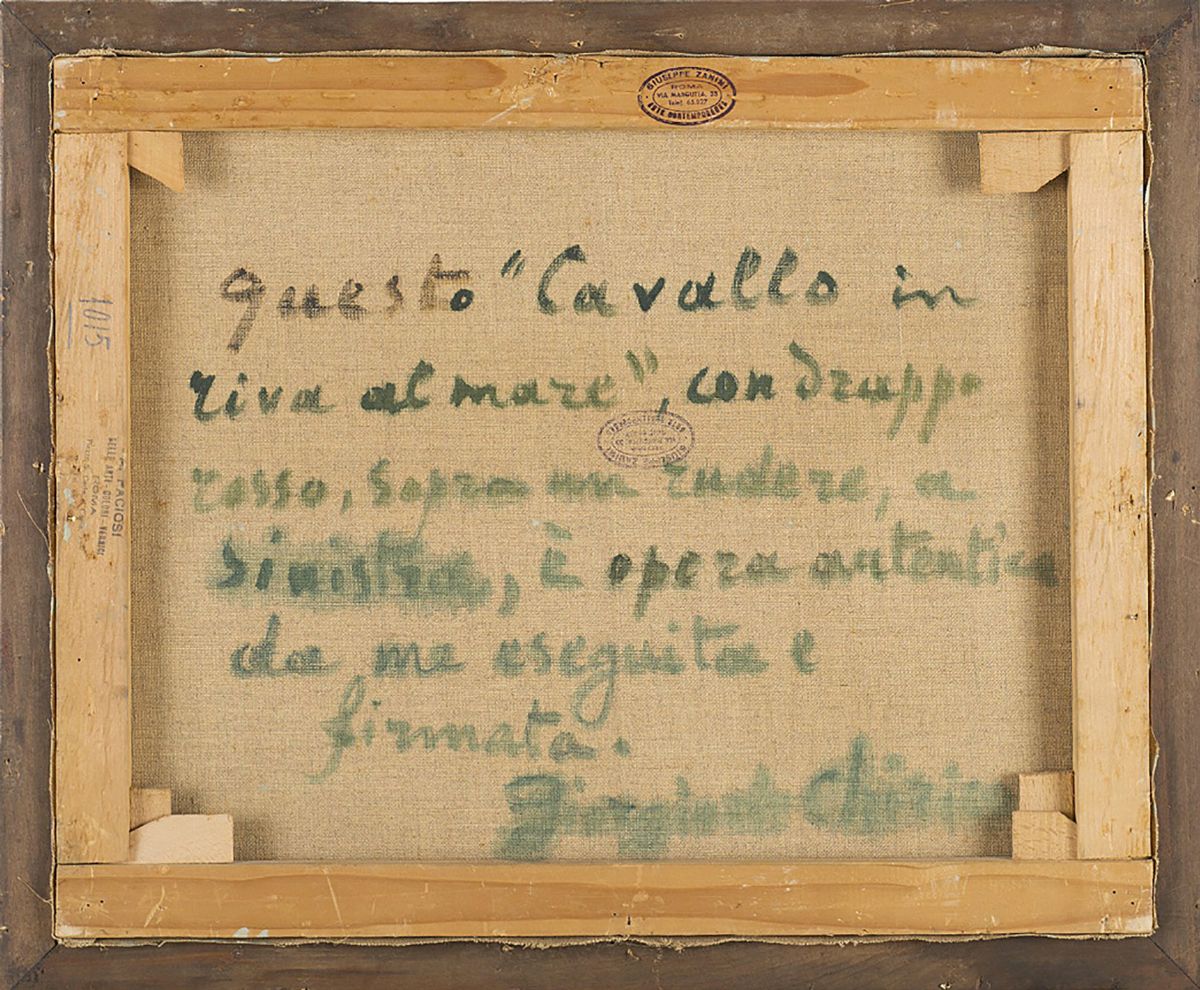 GIUSEPPE ZANINI
ROMA
VIA MARGUTTA, 23
Telef. 65.927
ARTE CONTEMPORANEA
questo "Cavallo in
riva al mare", con drappo
rosso, sopra un rudere, a
sinistra, è opera autentica
da me eseguita e
firmata.
Giorgio de Chirico
GIUSEPPE ZANINI
ARTE CONTEMPORANEA
1015
BELLE ARTI - COLORI - VERNICI
ROMA